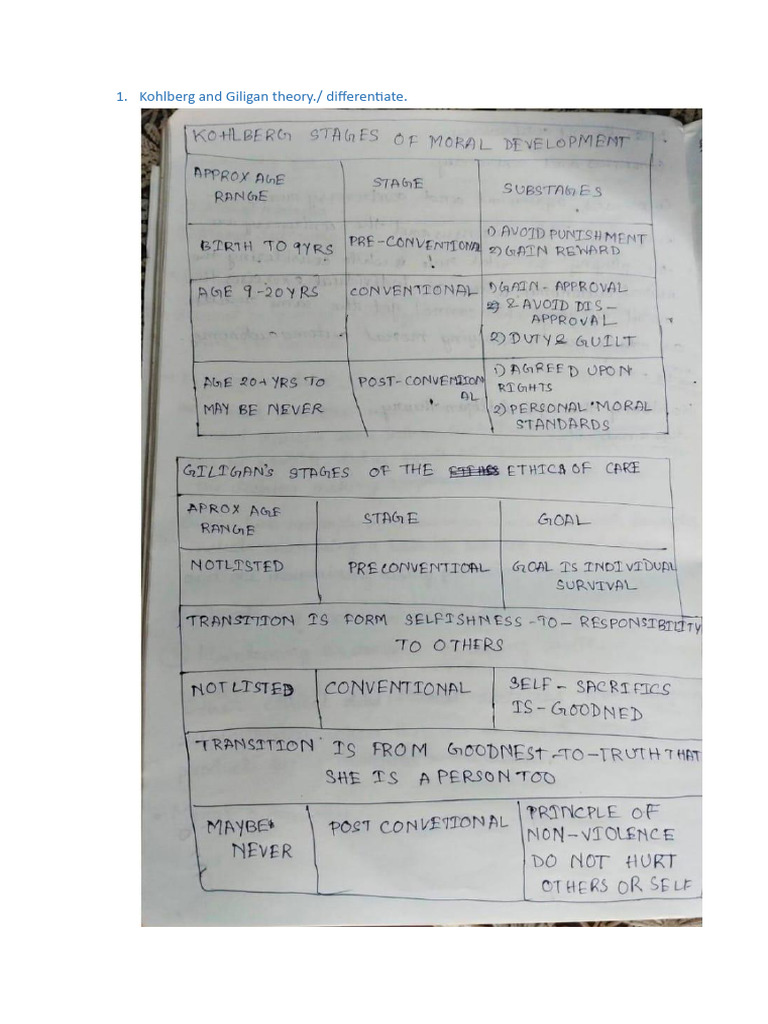 1. Kohlberg and Giligan theory./ differentiate.
KOHLBERG STAGES OF MORAL DEVELOPMENT
APPROX AGE
RANGE
STAGE
SUBSTAGES
BIRTH TO 9YRS
PRE-CONVENTIONAL
1) AVOID PUNISHMENT
2) GAIN REWARD
AGE 9-20YRS
CONVENTIONAL
1) GAIN-APPROVAL
& AVOID DIS-
APPROVAL
2) DUTY & GUILT
AGE 20+ YRS TO
MAY BE NEVER
POST-CONVENTION
AL
1) AGREED UPON
RIGHTS
2) PERSONAL MORAL
STANDARDS
GILIGAN'S STAGES OF THE ETHICS OF CARE
APROX AGE
RANGE
STAGE
GOAL
NOTLISTED
PRECONVENTIOAL
GOAL IS INDIVIDUAL
SURVIVAL
TRANSITION IS FORM SELFISHNESS-TO-RESPONSIBILITY
TO OTHERS
NOT LISTED
CONVENTIONAL
SELF-SACRIFICS
IS-GOODNED
TRANSITION IS FROM GOODNEST-TO-TRUTH THAT
SHE IS A PERSON TOO
MAYBE
NEVER
POST CONVETIONAL
PRINCPLE OF
NON-VIOLENCE
DO NOT HURT
OTHERS OR SELF